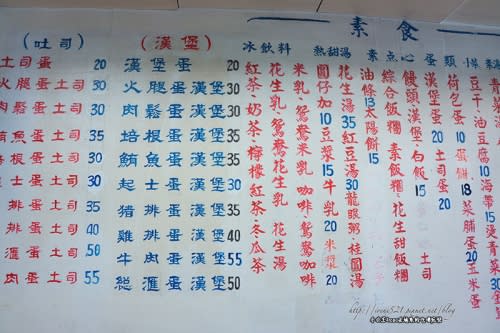 素食
(吐司)
土司蛋 20
火腿蛋土司 30
肉鬆蛋土司 30
鮪魚蛋土司 35
培根蛋土司 35
起士蛋土司 30
豬排蛋土司
雞排蛋土司 40
總滙蛋土司 50
牛肉蛋土司 55
(漢堡)
漢堡蛋 20
火腿蛋漢堡 30
肉鬆蛋漢堡 30
培根蛋漢堡 35
鮪魚蛋漢堡 35
起士蛋漢堡 30
猪排蛋漢堡 35
雞排蛋漢堡 40
牛肉蛋漢堡 55
総滙蛋漢堡 50
冰飲料
紅茶·奶茶·檸檬紅茶·冬瓜茶
花生乳·鴛鴦花生乳·花生湯
米乳·鴛鴦米乳·咖啡·鴛鴦咖啡
熱甜湯
圓仔加10 豆漿15 牛乳20 米漿20
花生湯35 紅豆湯30 龍眼粥·桂圓湯
素点心
油條13 太陽餅15
綜合飯糰 素飯糰·花生甜飯糰
饅頭·漢堡·白飯15
蛋類
漢堡蛋20 土司蛋20
荷包蛋10 蛋餅18 菜脯蛋20 玉米蛋
小菜
豆干·油豆腐10 海帶15 燙青菜30
http://irene521.pixnet.net/blog